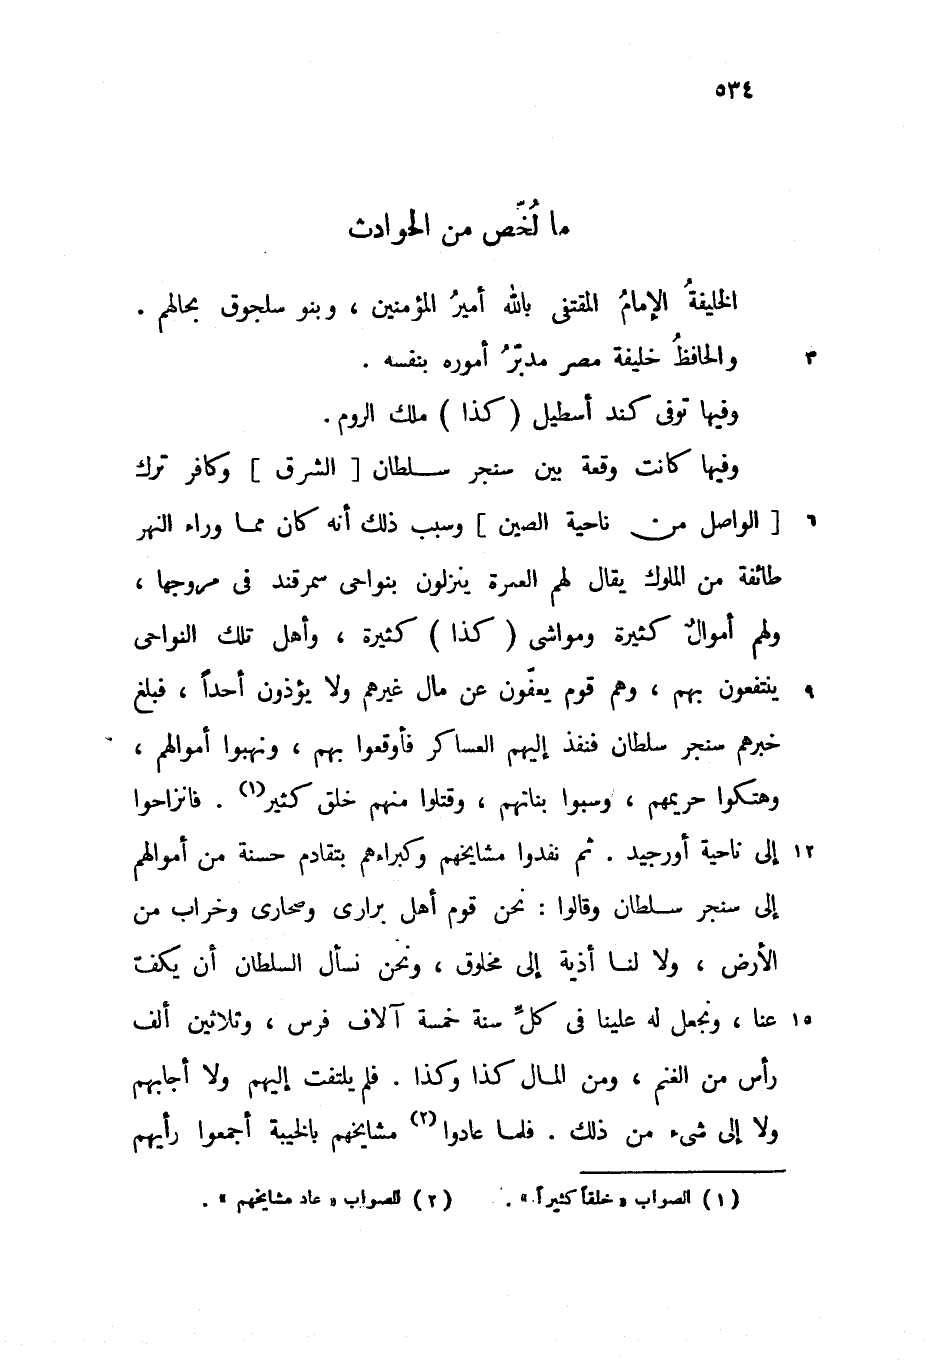 ٥٣٤
ما لُخِّص من الحوادث
الخليفةُ الإمامُ المقتفى بالله أميرُ المؤمنين ، وبنو سلجوق بحالهم .
٣ والحافظُ خليفة مصر مدبّرُ أموره بنفسه .
وفيها توفى كند أسطيل ( كذا ) ملك الروم .
وفيها كانت وقعة بين سنجر سلطان [ الشرق ] وكافر ترك
٦ [ الواصل من ناحية الصين ] وسبب ذلك أنه كان مما وراء النهر
طائفة من الملوك يقال لهم العمرة ينزلون بنواحى سمرقند فى مروجها ،
ولهم أموالٌ كثيرة ومواشى ( كذا ) كثيرة ، وأهل تلك النواحى
٩ ينتفعون بهم ، وهم قوم يعفّون عن مال غيرهم ولا يؤذون أحداً ، فبلغ
خبرهم سنجر سلطان فنفذ إليهم العساكر فأوقعوا بهم ، ونهبوا أموالهم ،
وهتكوا حريمهم ، وسبوا بناتهم ، وقتلوا منهم خلق كثير(١) . فانزاحوا
١٢ إلى ناحية أورجيد . ثم نفدوا مشايخهم وكبراءهم بتقادم حسنة من أموالهم
إلى سنجر سلطان وقالوا : نحن قوم أهل برارى وصحارى وخراب من
الأرض ، ولا لنا أذية إلى مخلوق ، ونحن نسأل السلطان أن يكفّ
١٥ عنا ، ونجعل له علينا فى كلّ سنة خمسة آلاف فرس ، وثلاثين ألف
رأس من الغنم ، ومن المال كذا وكذا . فلم يلتفت إليهم ولا أجابهم
ولا إلى شىء من ذلك . فلما عادوا(٢) مشايخهم بالخيبة أجمعوا رأيهم
(١) الصواب « خلقاً كثيراً » . (٢) الصواب « عاد مشايخهم » .